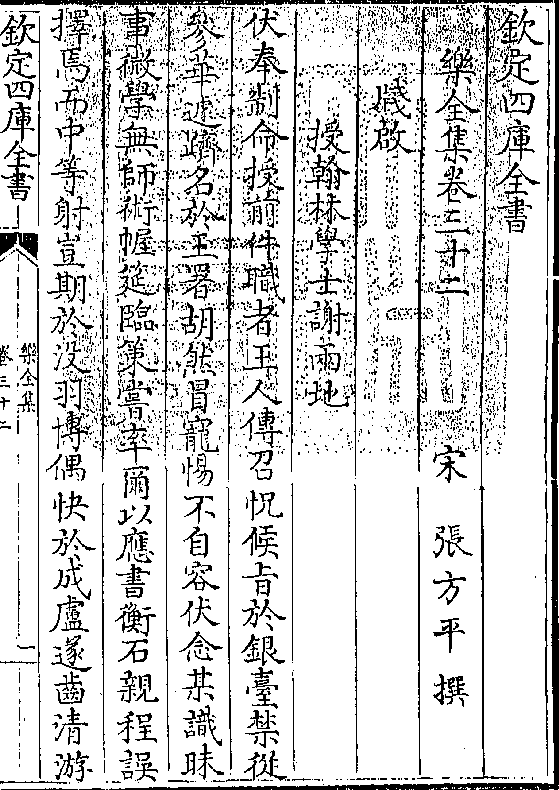 欽定四庫全書
樂全集卷三十二
宋 張方平 撰
牋啟
授翰林學士謝兩地
伏奉制命授前件職者王人傳召怳候㫖於銀臺禁從
叅華遞躋名於玉署胡然冒寵惕不自容伏念某識昧
事㣲學無師術幄筵臨策嘗率爾以應書衡石親程誤
擇焉而中等射豈期於没羽博偶快於成盧遂齒清游
欽定四庫全書
樂全集
卷三十二
一